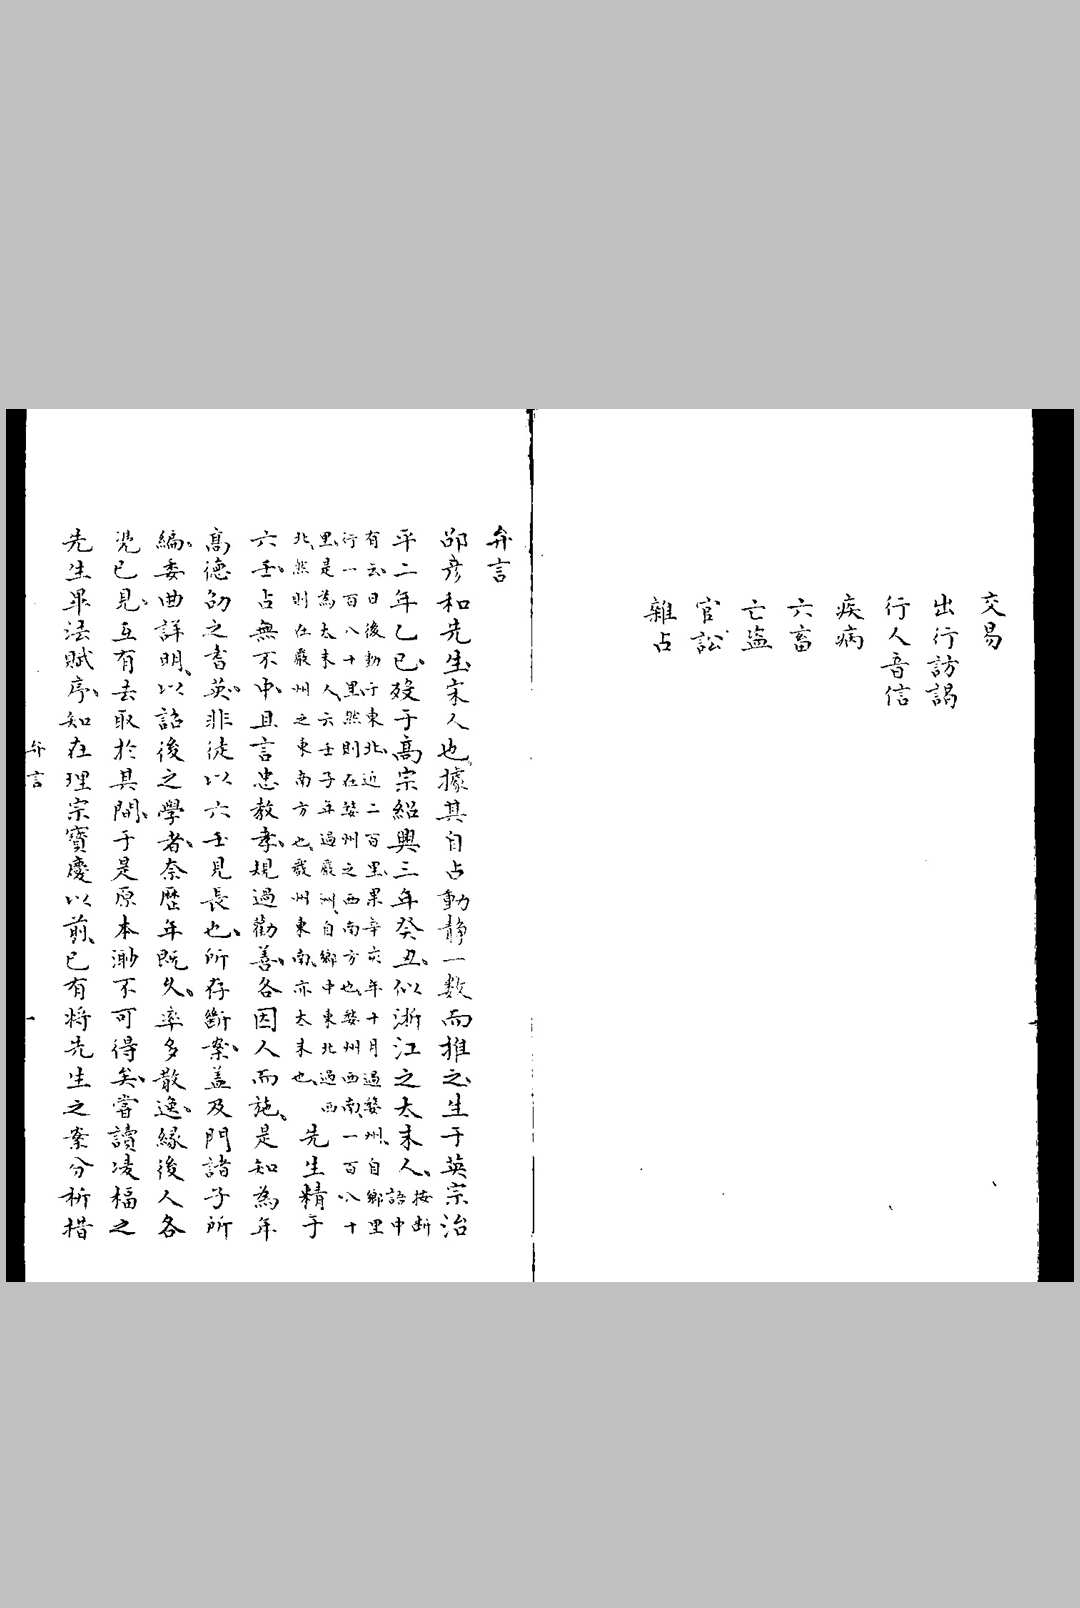 交易
出行訪謁
行人音信
疾病
六畜
亡盜
官訟
雜占
弁言
邵彥和先生、宋人也、據其自占動靜一數而推之、生于英宗治
平二年乙巳、歿于高宗紹興三年癸丑、似浙江之太末人、按斷語中
有云日後動于東北、近二百里、果辛亥年十月過婺州、自鄉里
行一百八十里、然則在婺州之西南方也、婺州西南、一百八十
里、是為太末人、六壬子年過嚴洲、自鄉中東北過西
北、然則在嚴州之東南方也、嚴州東南、亦太末也、先生精于
六壬、占無不中、且言忠教孝、規過勸善、各因人而施、是知為年
高德劭之耆英、非徒以六壬見長也、所存斷案、蓋及門諸子所
編、委曲詳明、以詔後之學者、奈歷年既久、率多散逸、緣後人各
凴已見、互有去取於其間、于是原本渺不可得矣、嘗讀凌福之
先生畢法賦序、知在理宗寶慶以前、已有將先生之案分析措
弁言
一